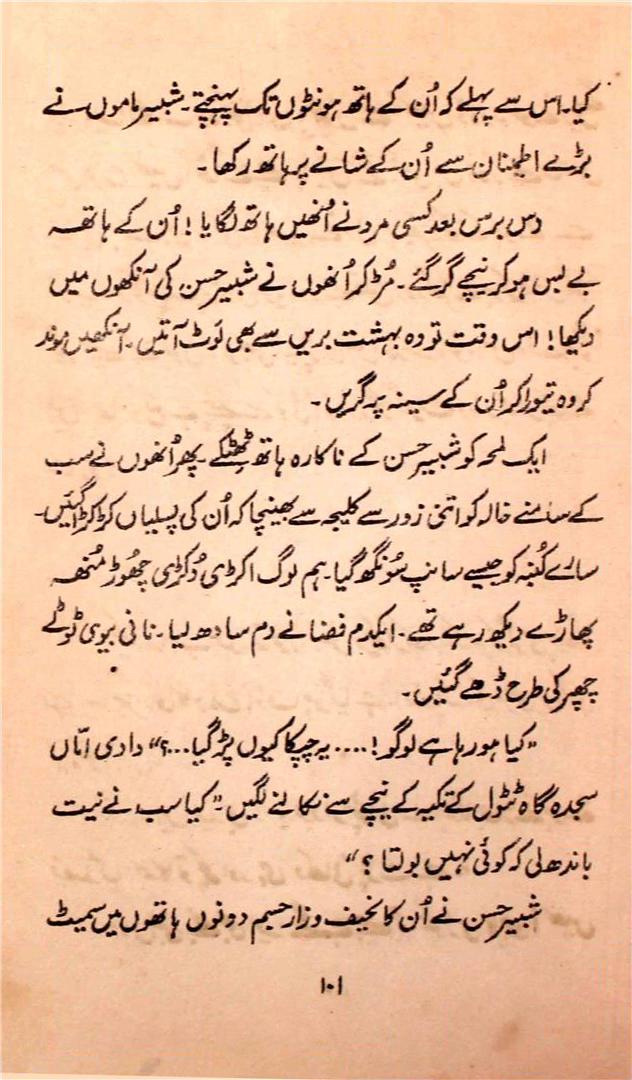 کیا۔ اس سے پہلے کہ اُن کے ہاتھ ہونٹوں تک پہنچتے۔ شبیر ماموں نے
بڑے اطمینان سے اُن کے شانے پر ہاتھ رکھا۔
دس برس بعد کسی مرد نے اُنھیں ہاتھ لگایا! اُن کے ہاتھ
بے بس ہو کر نیچے گر گئے۔ مُڑ کر اُنھوں نے شبیر حسن کی آنکھوں میں
دیکھا! اس وقت تو وہ بہشت بریں سے بھی لَوٹ آتیں۔ آنکھیں موند
کر وہ تیورا کر اُن کے سینہ پر گریں۔
ایک لمحہ کو شبیر حسن کے ناکارہ ہاتھ ٹھٹکے۔ پھر اُنھوں نے سب
کے سامنے خالہ کو اتنی زور سے کلیجہ سے بھینچا کہ اُن کی پسلیاں کڑکڑا گئیں۔
سارے کُنبہ کو جیسے سانپ سُونگھ گیا۔ ہم لوگ اکڑی دُکڑی چھوڑ مُنھ
پھاڑے دیکھ رہے تھے۔ ایکدم فضا نے دم سادھ لیا۔ نانی بیوی ٹوٹے
چھپر کی طرح ڈھے گئیں۔
"کیا ہو رہا ہے لوگو!.... یہ چپکا کیوں پڑ گیا...؟" دادی امّاں
سجدہ گاہ ٹٹول کے تکیہ کے نیچے سے نکالنے لگیں۔ "کیا سب نے نیت
باندھ لی کہ کوئی نہیں بولتا؟"
شبیر حسن نے اُن کا نحیف و زار جسم دونوں ہاتھوں میں سمیٹ
۱۰۱